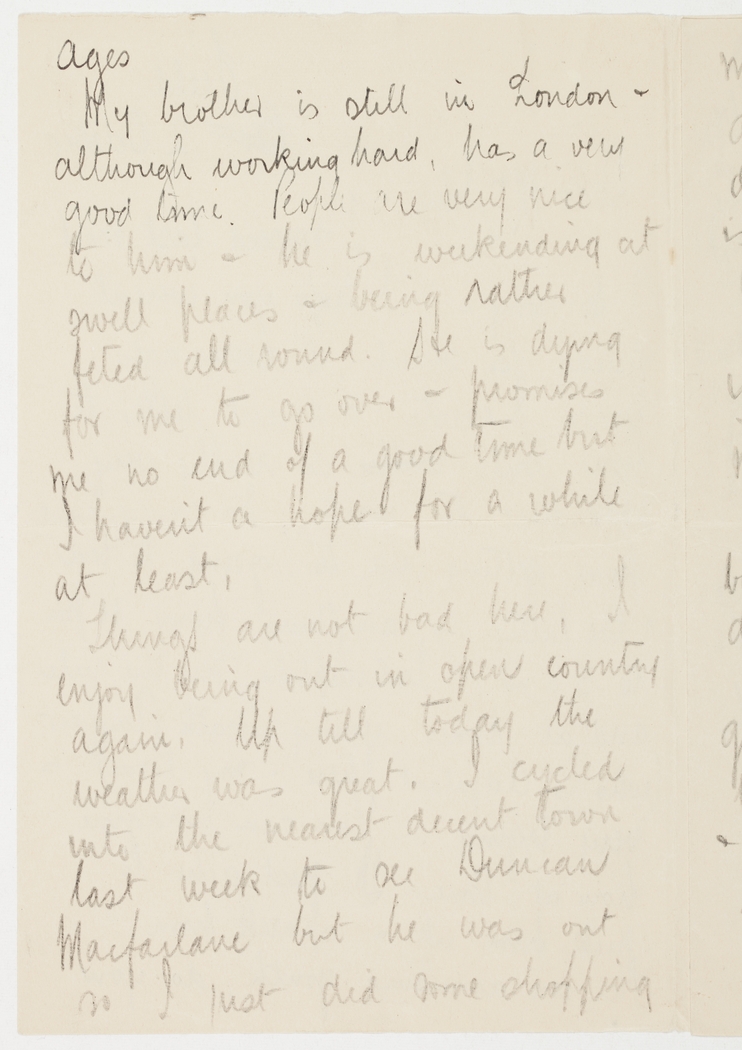 ages
My brother is still in London -
although working hard, has a very
good time. People are very nice
to him & he is weekending at
swell places & being rather
feted all round. He is dying
for me to go over & promises
me no end of a good time but
I haven't a hope for a while
at least.
Things are not bad here, I
enjoy being out in open country
again. Up till today the
weather was great. I cycled
into the nearest decent town
last week to see Duncan
Macfarlane but he was out
so I just did some shopping